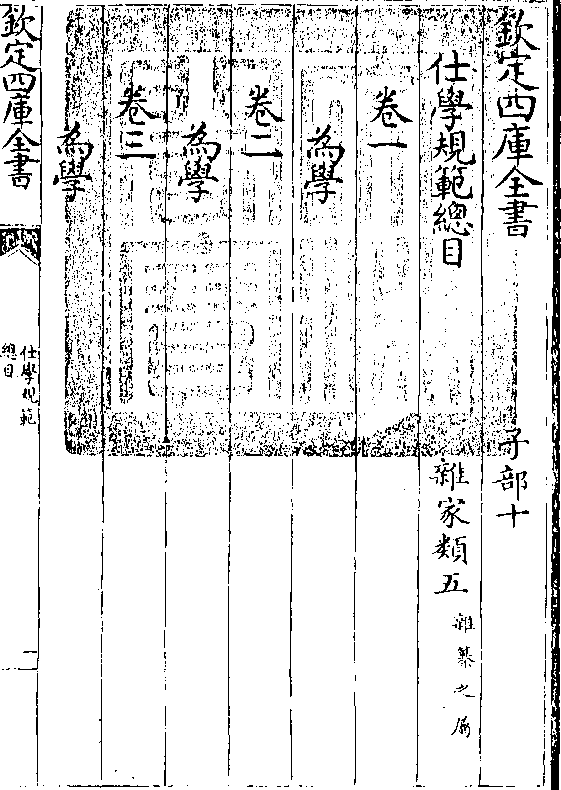 欽定四庫全書 子部十
仕學規範總目 雜家類五 雜纂之屬
卷一
為學
卷二
為學
卷三
為學
欽定四庫全書
仕學規範
總目
一